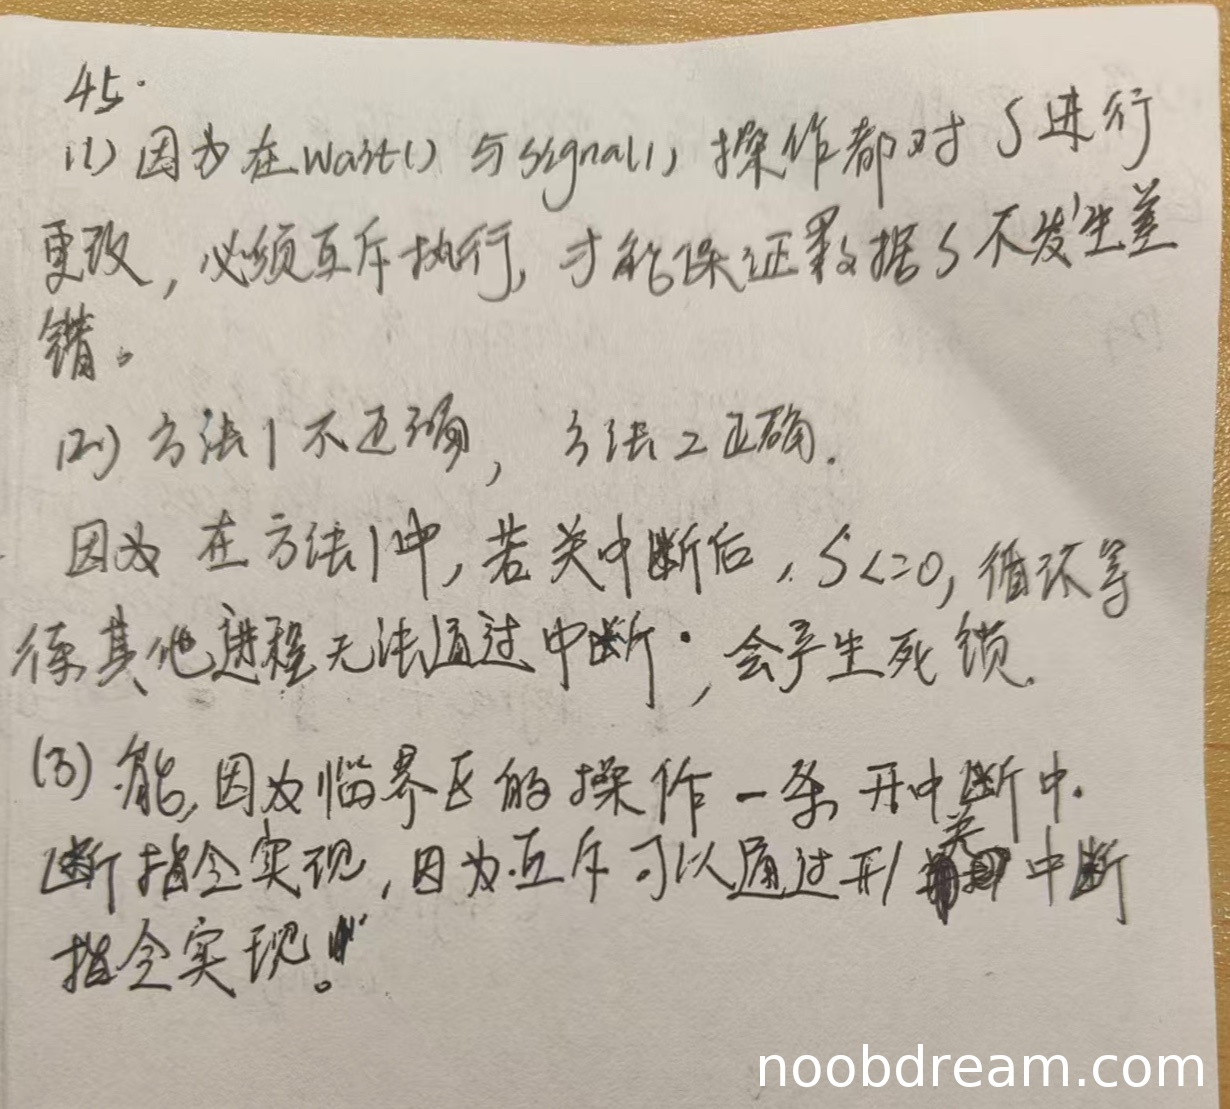 45.
(1) 因为在wait() 与signal() 操作都对 S 进行
更改，必须互斥执行，才能保证数据 S 不发生差
错。
(2) 方法1不正确，方法2正确.
因为 在方法1中，若关中断后，S<=0，循环等
待其他进程无法通过中断，会产生死锁.
(3) 能，因为临界区的操作一条开中断中.
断指令实现，因为互斥可以通过开关中断
指令实现。
noobdream.com